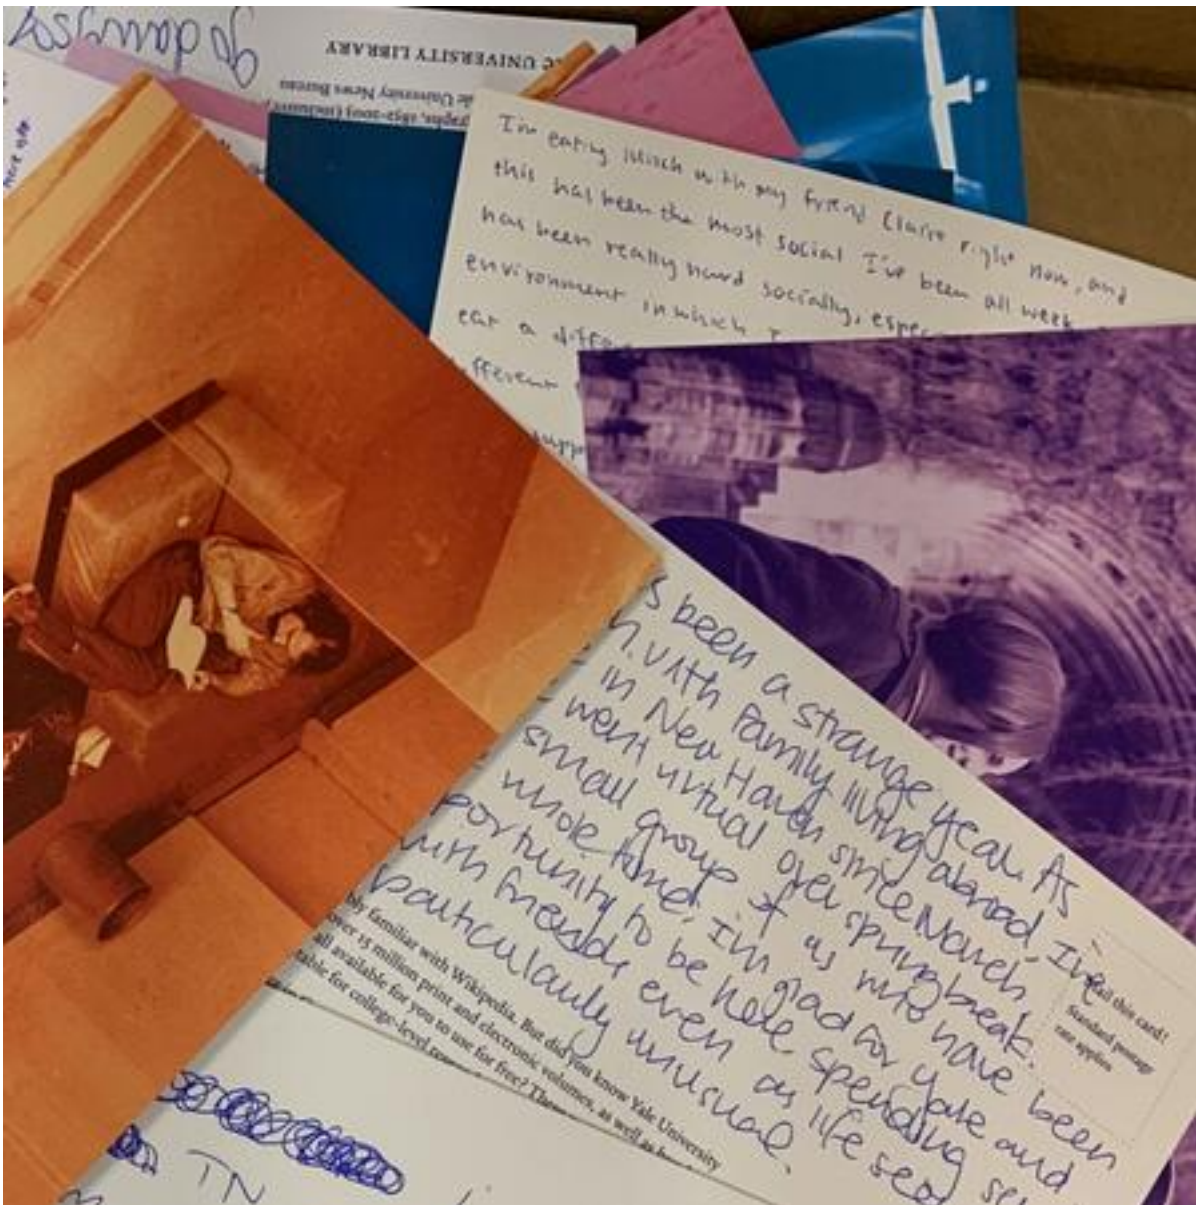 go dawgssss
UNIVERSITY LIBRARY
Yale University News Bureau
1852-2005 (inclusive)
here
I'm eating lunch with my friend Claire right now, and
this has been the most social I've been all week.
has been really hard socially,
environment in which I
eat a
fferent
s been a strange year. As
with family living abroad, I've
in New Haven since March
went virtual over spring break.
small group of us who have been
whole time. I'm glad for Yale and
portunity to be here spending
with friends even as life
particularly unusual.
ail this card!
Standard postage
rate applies
bly familiar with Wikipedia. But did you know Yale University
over 15 million print and electronic volumes, as well as
all available for you to use for free? These
table for college-level
IN